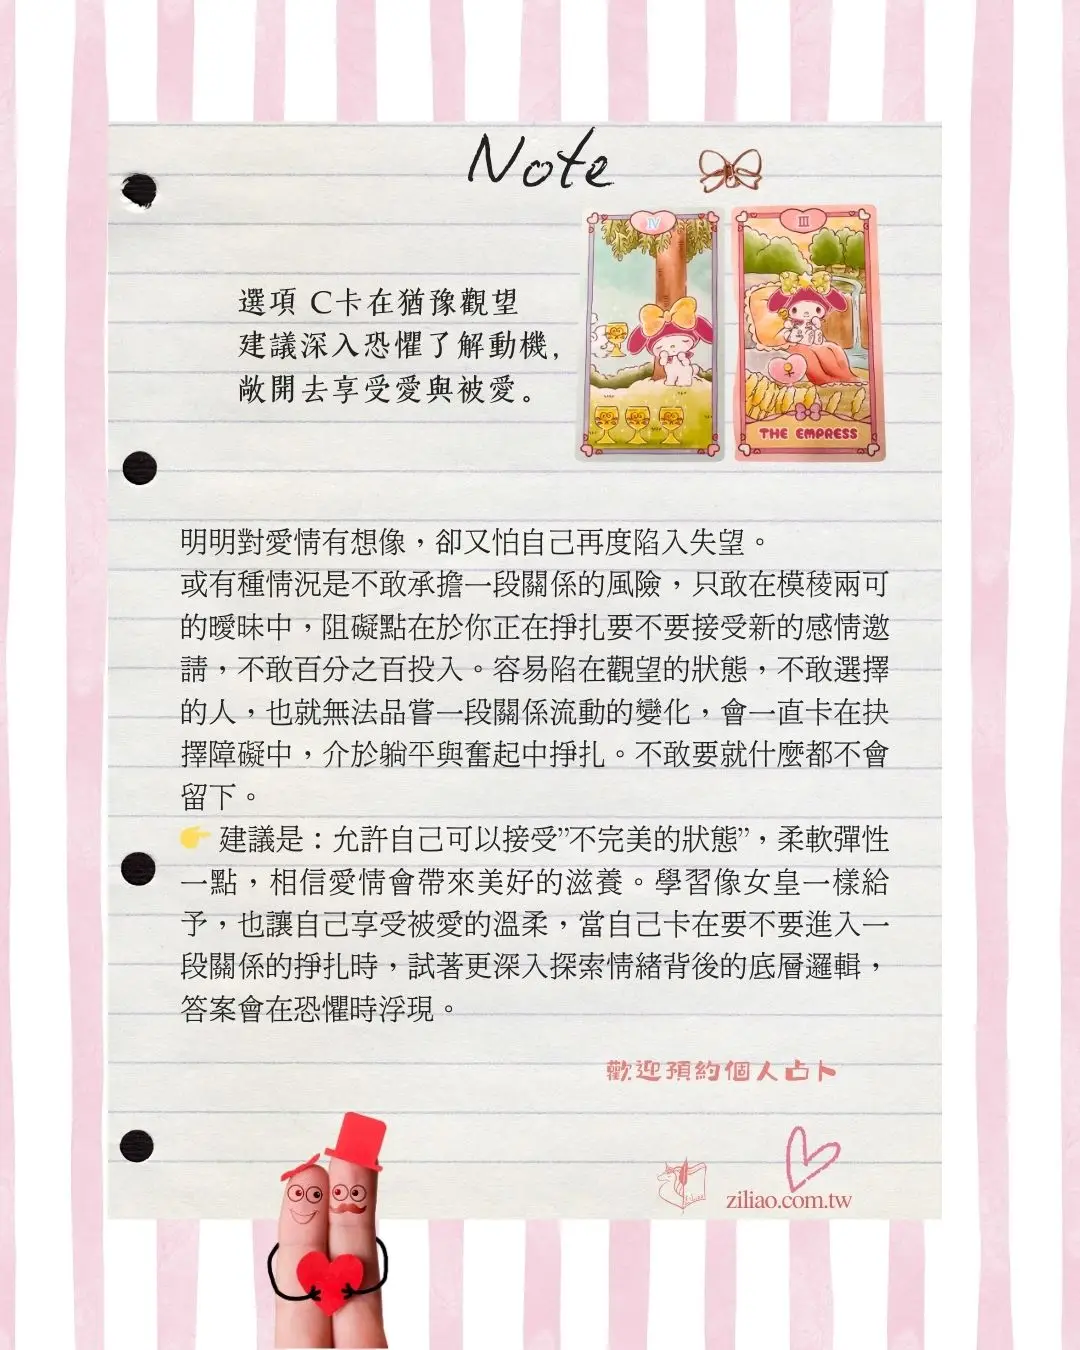 Note
選項 C卡在猶豫觀望
建議深入恐懼了解動機,
敞開去享受愛與被愛。
IV
III
THE EMPRESS
明明對愛情有想像，卻又怕自己再度陷入失望。
或有種情況是不敢承擔一段關係的風險，只敢在模稜兩可
的曖昧中，阻礙點在於你正在掙扎要不要接受新的感情邀
請，不敢百分之百投入。容易陷在觀望的狀態，不敢選擇
的人，也就無法品嘗一段關係流動的變化，會一直卡在抉
擇障礙中，介於躺平與奮起中掙扎。不敢要就什麼都不會
留下。
👉 建議是：允許自己可以接受”不完美的狀態”，柔軟彈性
一點，相信愛情會帶來美好的滋養。學習像女皇一樣給
予，也讓自己享受被愛的溫柔，當自己卡在要不要進入一
段關係的掙扎時，試著更深入探索情緒背後的底層邏輯，
答案會在恐懼時浮現。
歡迎預約個人占卜
ziliao.com.tw